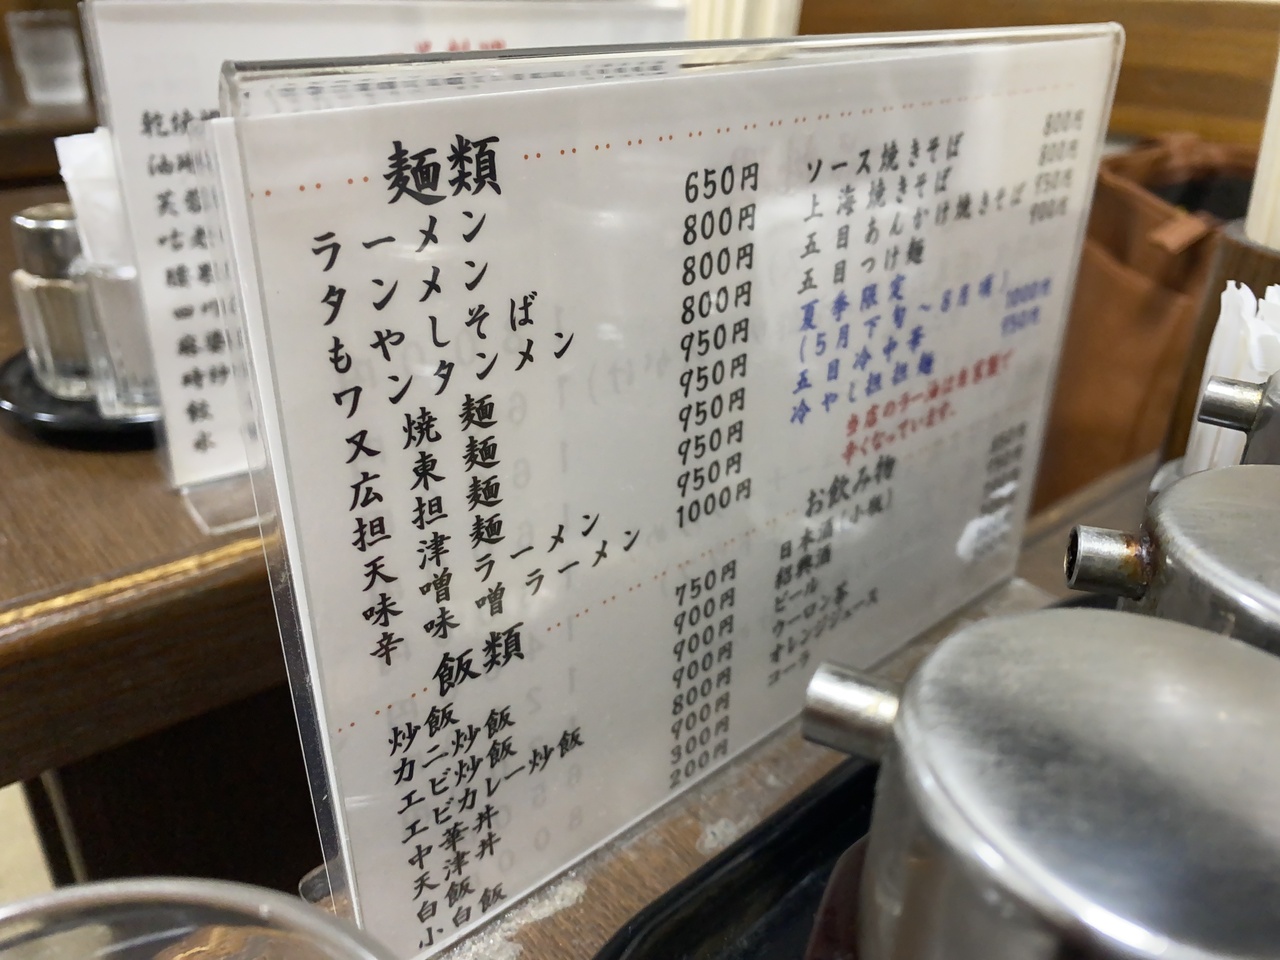 麺類
ラーメン 650円
タンメン 800円
もやしそば 800円
ワンタンメン 800円
又焼麺 950円
広東麺 950円
担担麺 950円
天津麺 950円
味噌ラーメン 950円
辛味噌ラーメン 1000円
飯類
炒飯 750円
カニ炒飯 900円
エビ炒飯 900円
エビカレー炒飯 900円
中華丼 800円
天津丼 900円
白飯 300円
小白飯 200円
ソース焼きそば 800円
上海焼きそば 800円
五目あんかけ焼きそば 950円
五目つけ麺 900円
夏季限定
(5月下旬～8月頃)
五目冷中華 1000円
冷やし担担麺 950円
当店のラー油は自家製で
辛くなっています。
お飲み物
日本酒(小瓶)
紹興酒
ビール
ウーロン茶
オレンジジュース
コーラ